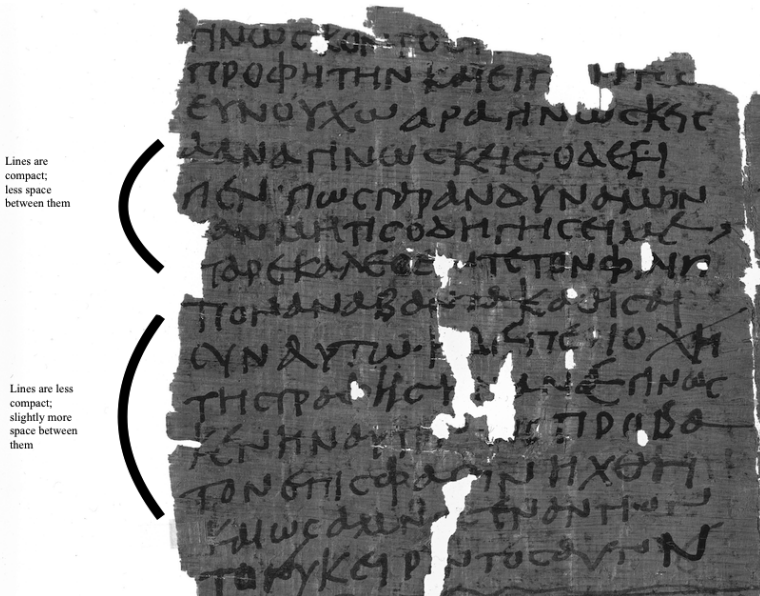 Lines are
compact;
less space
between them
Lines are less
compact;
slightly more
space between
them
ΠΡΟΦΗΤΗΝ ΚΑΙ ΕΙΠ
ΕΥΝΟΥΧΩ ΑΡΑ ΓΙΝΩΣΚΙΣ
Α ΑΝΑΓΙΝΩΣΚΙΣ Ο ΔΕ ΕΙ
ΠΕΝ ΠΩΣ ΓΑΡ ΑΝ ΔΥΝΑΜΗΝ
ΑΝ ΜΗ ΤΙΣ ΟΔΗΓΗΣΕΙ ΜΕ
ΠΑΡΕΚΑΛΕΣΕ ΤΕ ΤΟΝ ΦΙΛΙΠ
ΠΟΝ ΑΝΑΒΑΝΤΑ ΚΑΘΙΣΑΙ
ΣΥΝ ΑΥΤΩ ΠΕΡΙΟΧΗ
ΤΗΣ ΓΡΑΦΗΣ ΑΝΕΓΙΝΩΣ
ΚΕΝ ΗΝ ΠΡΟΒΑ
ΤΟΝ ΕΠΙ ΣΦΑΓΗΝ ΗΧΘΗ
ΚΑΙ ΩΣ ΑΜΝΟΣ ΕΝΑΝΤΙΟΝ
ΤΟΥ ΚΕΙΡΟΝΤΟΣ ΑΥΤΟΝ